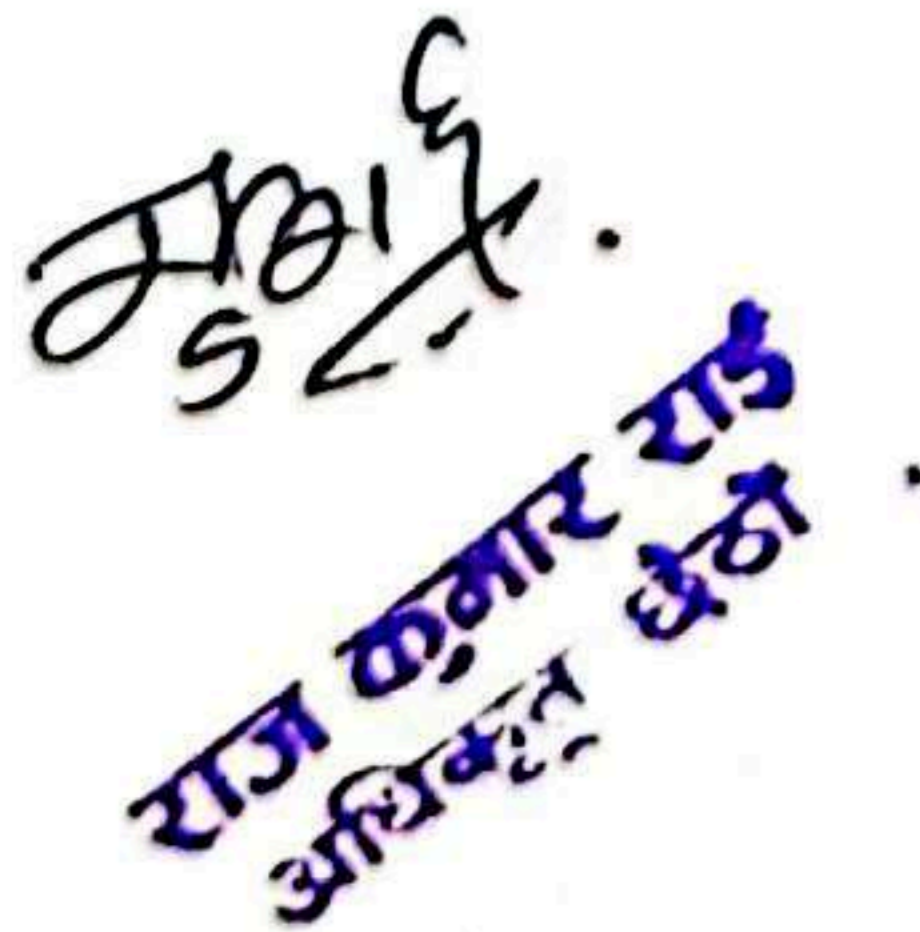 राज कुमार राई
अधिकृत छैठौं